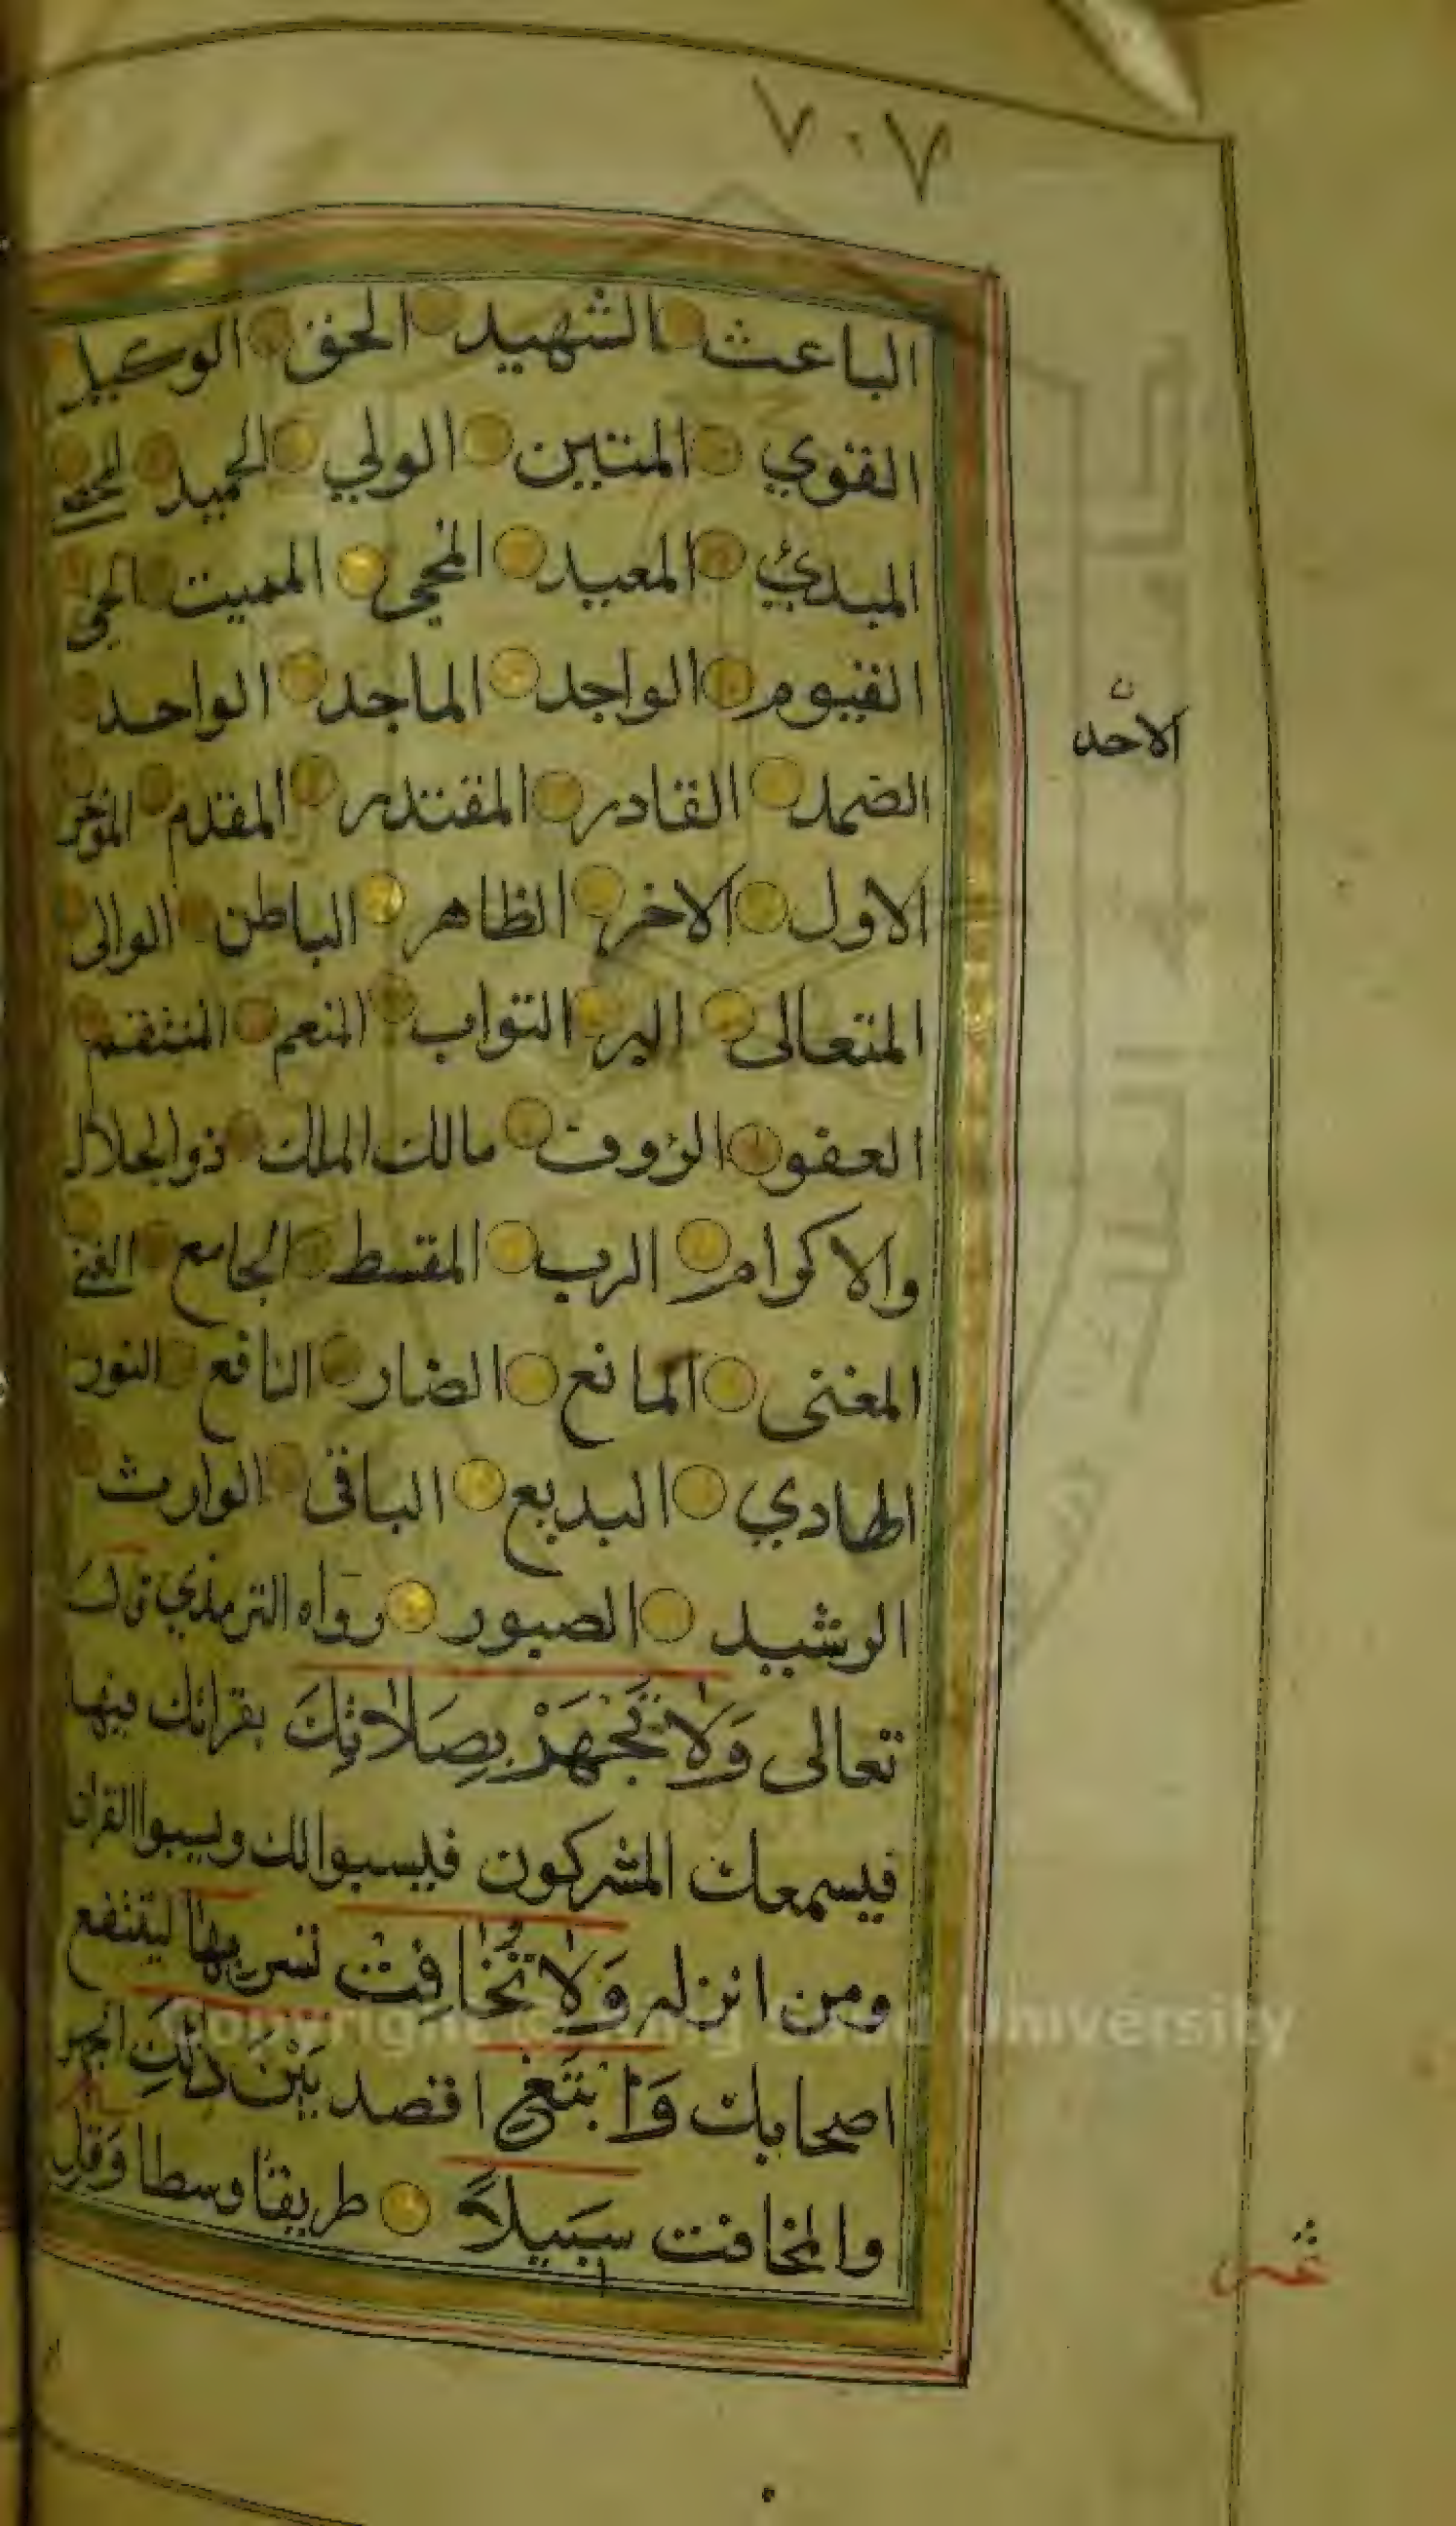 ٧٠٧
الباعث الشهيد الحق الوكيل
القوي المتين الولي الحميد المحصي
المبدئ المعيد المحيي المميت الحي
القيوم الواجد الماجد الواحد
الاحد
الصمد القادر المقتدر المقدم المؤخر
الاول الاخر الظاهر الباطن الوالى
المتعالى البر التواب المنعم المنتقم
العفو الرؤوف مالك الملك ذوالجلال
والاكرام الرب المقسط الجامع الغني
المغنى المانع الضار النافع النور
الهادي البديع الباقى الوارث
الرشيد الصبور رواه الترمذي قال
تعالى وَلَا تَجْهَرْ بِصَلَاتِكَ بقرائتك فيها
فيسمعك المشركون فيسبوالك ويسبوا القران
ومن انزله وَلَا تُخَافِتْ تسر بها لينتفع
اصحابك وَابْتَغِ اقصد بَيْنَ ذَلِكَ الجهر
والمخافت سَبِيلاً طريقا وسطا وَقُلِ
عشر
Copyright © King Saud University